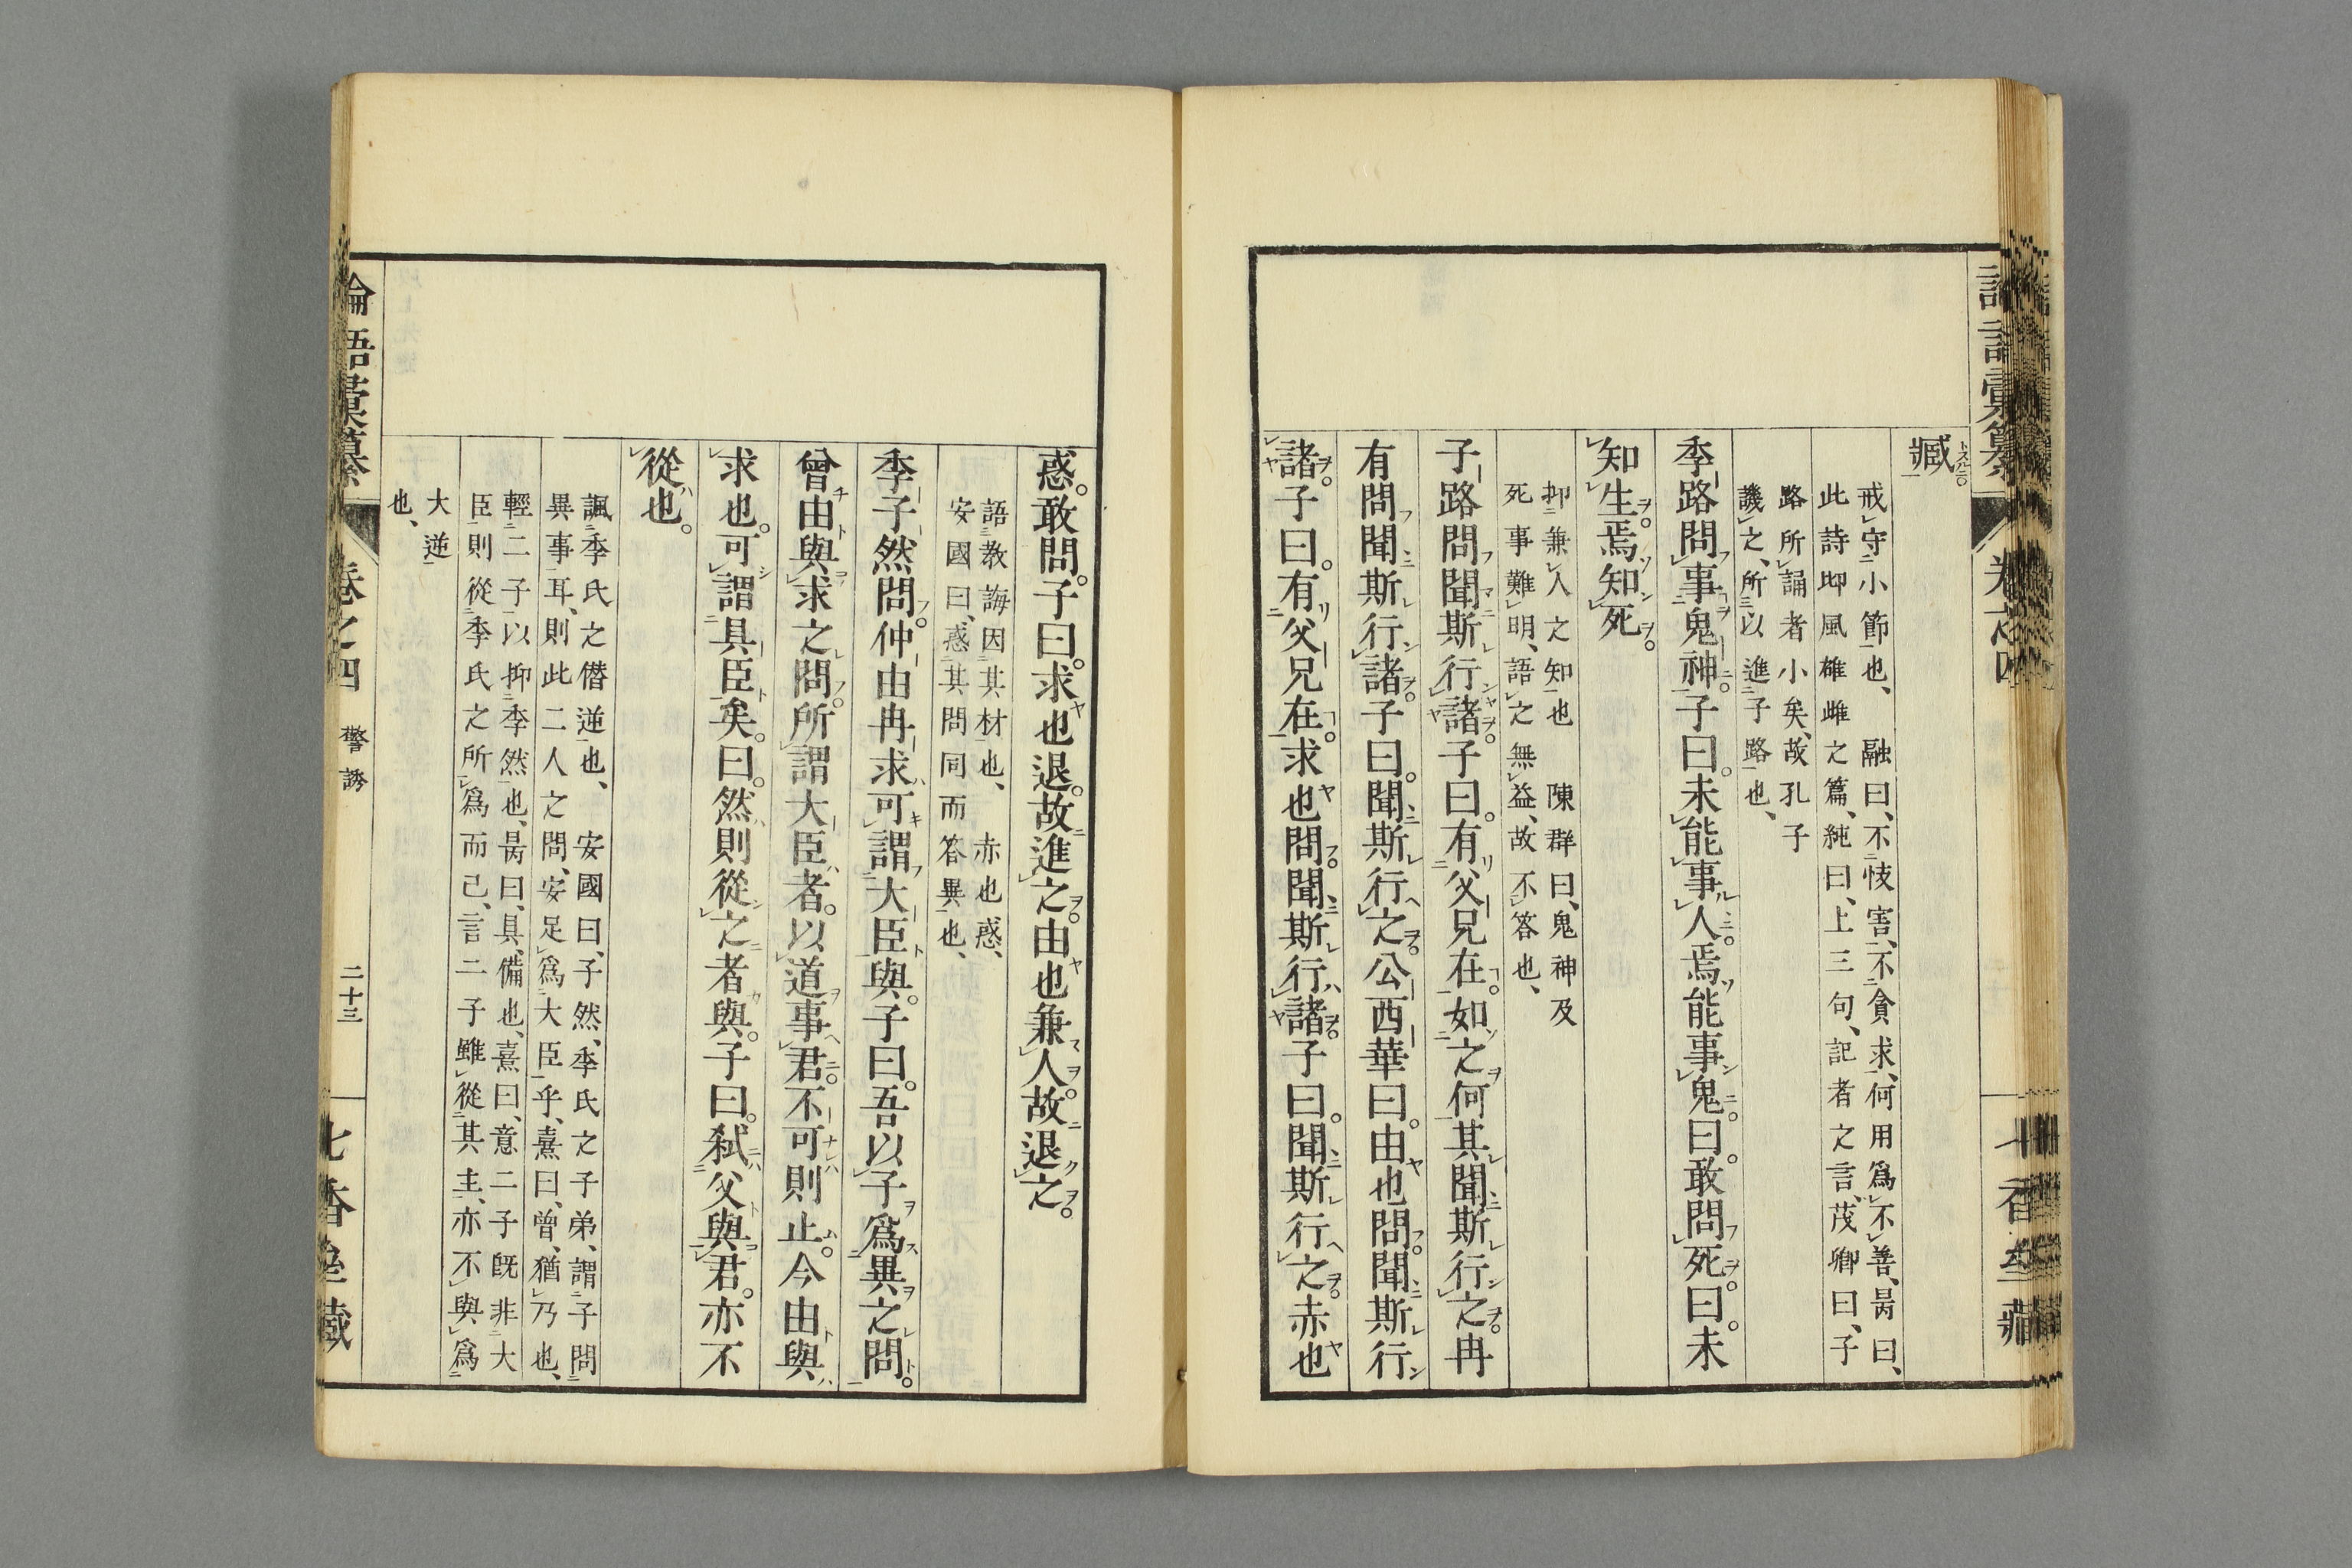 臧
戒守小節也、融曰、不忮害、不貪求、何用爲不善、昺曰、
此詩卽風雄雌之篇、純曰、上三句、記者之言、茂卿曰、子
路所誦者小矣、故孔子
譏之、所以進子路也、
季路問事鬼神子曰。未能事人焉能事鬼曰。敢問死曰。未
知生焉知死
抑兼人之知也 陳群曰、鬼神及
死事難明、語之無益、故不答也、
子路問聞斯行諸子曰。有父兄在如之何其聞斯行之冉
有問聞斯行諸子曰。聞斯行之公西華曰。由也問聞斯行
諸子曰。有父兄在求也問聞斯行諸子曰。聞斯行之赤也
惑。敢問。子曰。求也退。故進之由也兼人故退之。
語教誨因其材也、 赤也惑、
安國曰、惑其問同而答異也、
季子然問仲由冉求可謂大臣與。子曰。吾以子爲異之問。
曾由與求之問所謂大臣者。以道事君不可則止。今由與
求也。可謂具臣矣。曰。然則從之者與。子曰。弑父與君。亦不
從也。
諷季氏之僭逆也、 安國曰、子然、季氏之子弟、謂子問
異事耳、則此二人之問、安足爲大臣乎、熹曰、曾、猶乃也、
輕二子以抑季然也、昺曰、具、備也、熹曰、意二子旣非大
臣則從季氏之所爲而已、言二子雖從其主、亦不與爲
大逆
也、
論語彙纂 卷之四 警誘 二十三